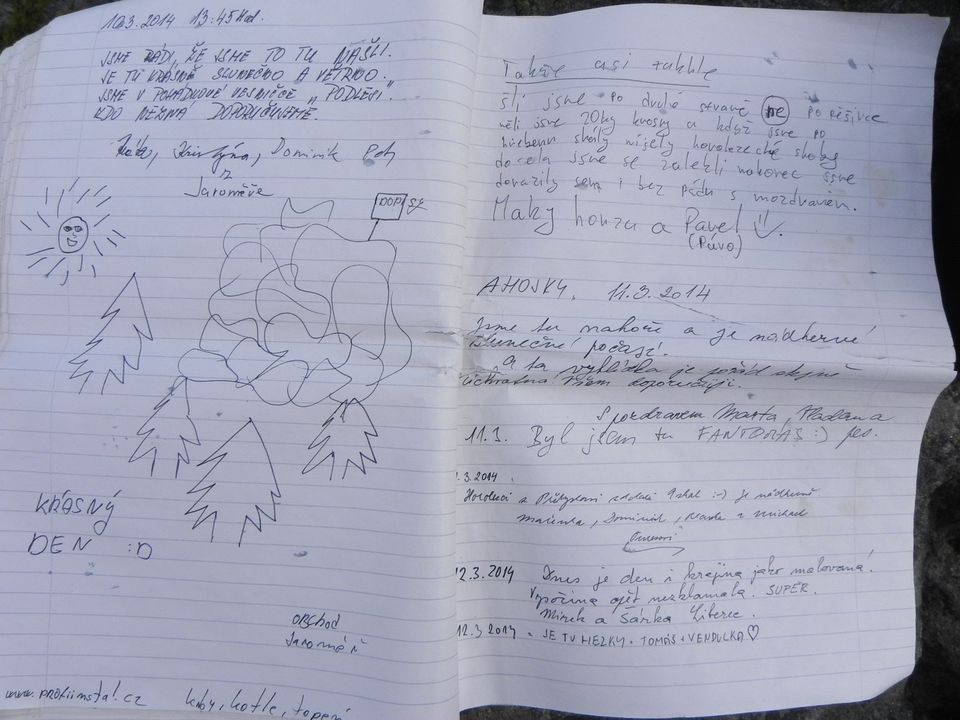 10.3.2014 13:45 hod.
JSME RÁDI, ŽE JSME TO TU NAŠLI.
JE TU KRÁSNĚ SLUNEČNO A VĚTRNO.
JSME V POHÁDKOVÉ VESNIČCE „PODLESÍ“.
KDO NEZNÁ DOPORUČUJEME.
Kristýna, Dominik
z
Jaroměře
DOPISY
KRÁSNÝ
DEN :D
obchod
Jaroměř
www.profiinstal.cz krby, kotle, topení
Takže asi takhle
šli jsme po druhé straně ne po pěšince
měli jsme 20kg krosny a když jsme po
hřebenu skály viděly horolezecké skoby
docela jsme se zalekli nakonec jsme
dorazily sem i bez pádu s
Maky honza a Pavel
(Pávo)
AHOJKY, 11.3.2014
Jsme tu nahoře a je nádherné
slunečné počasí.
A ta vyhlídka je pořád stejně
všem doporučuji.
S pozdravem Marta,
11.3. Byl jsem tu FANTOMAS :) pes.
3.2014
Horolezci z :-) je nádherně
Malinka, Dominik, a Michal
12.3.2014 Dnes je den i krajina jako malovaná!
opět nezklamala. SUPER.
Mirek a Šárka Liberec.
12.3 2014 - JE TU HEZKY - TOMÁŠ + VENDULKA ♡